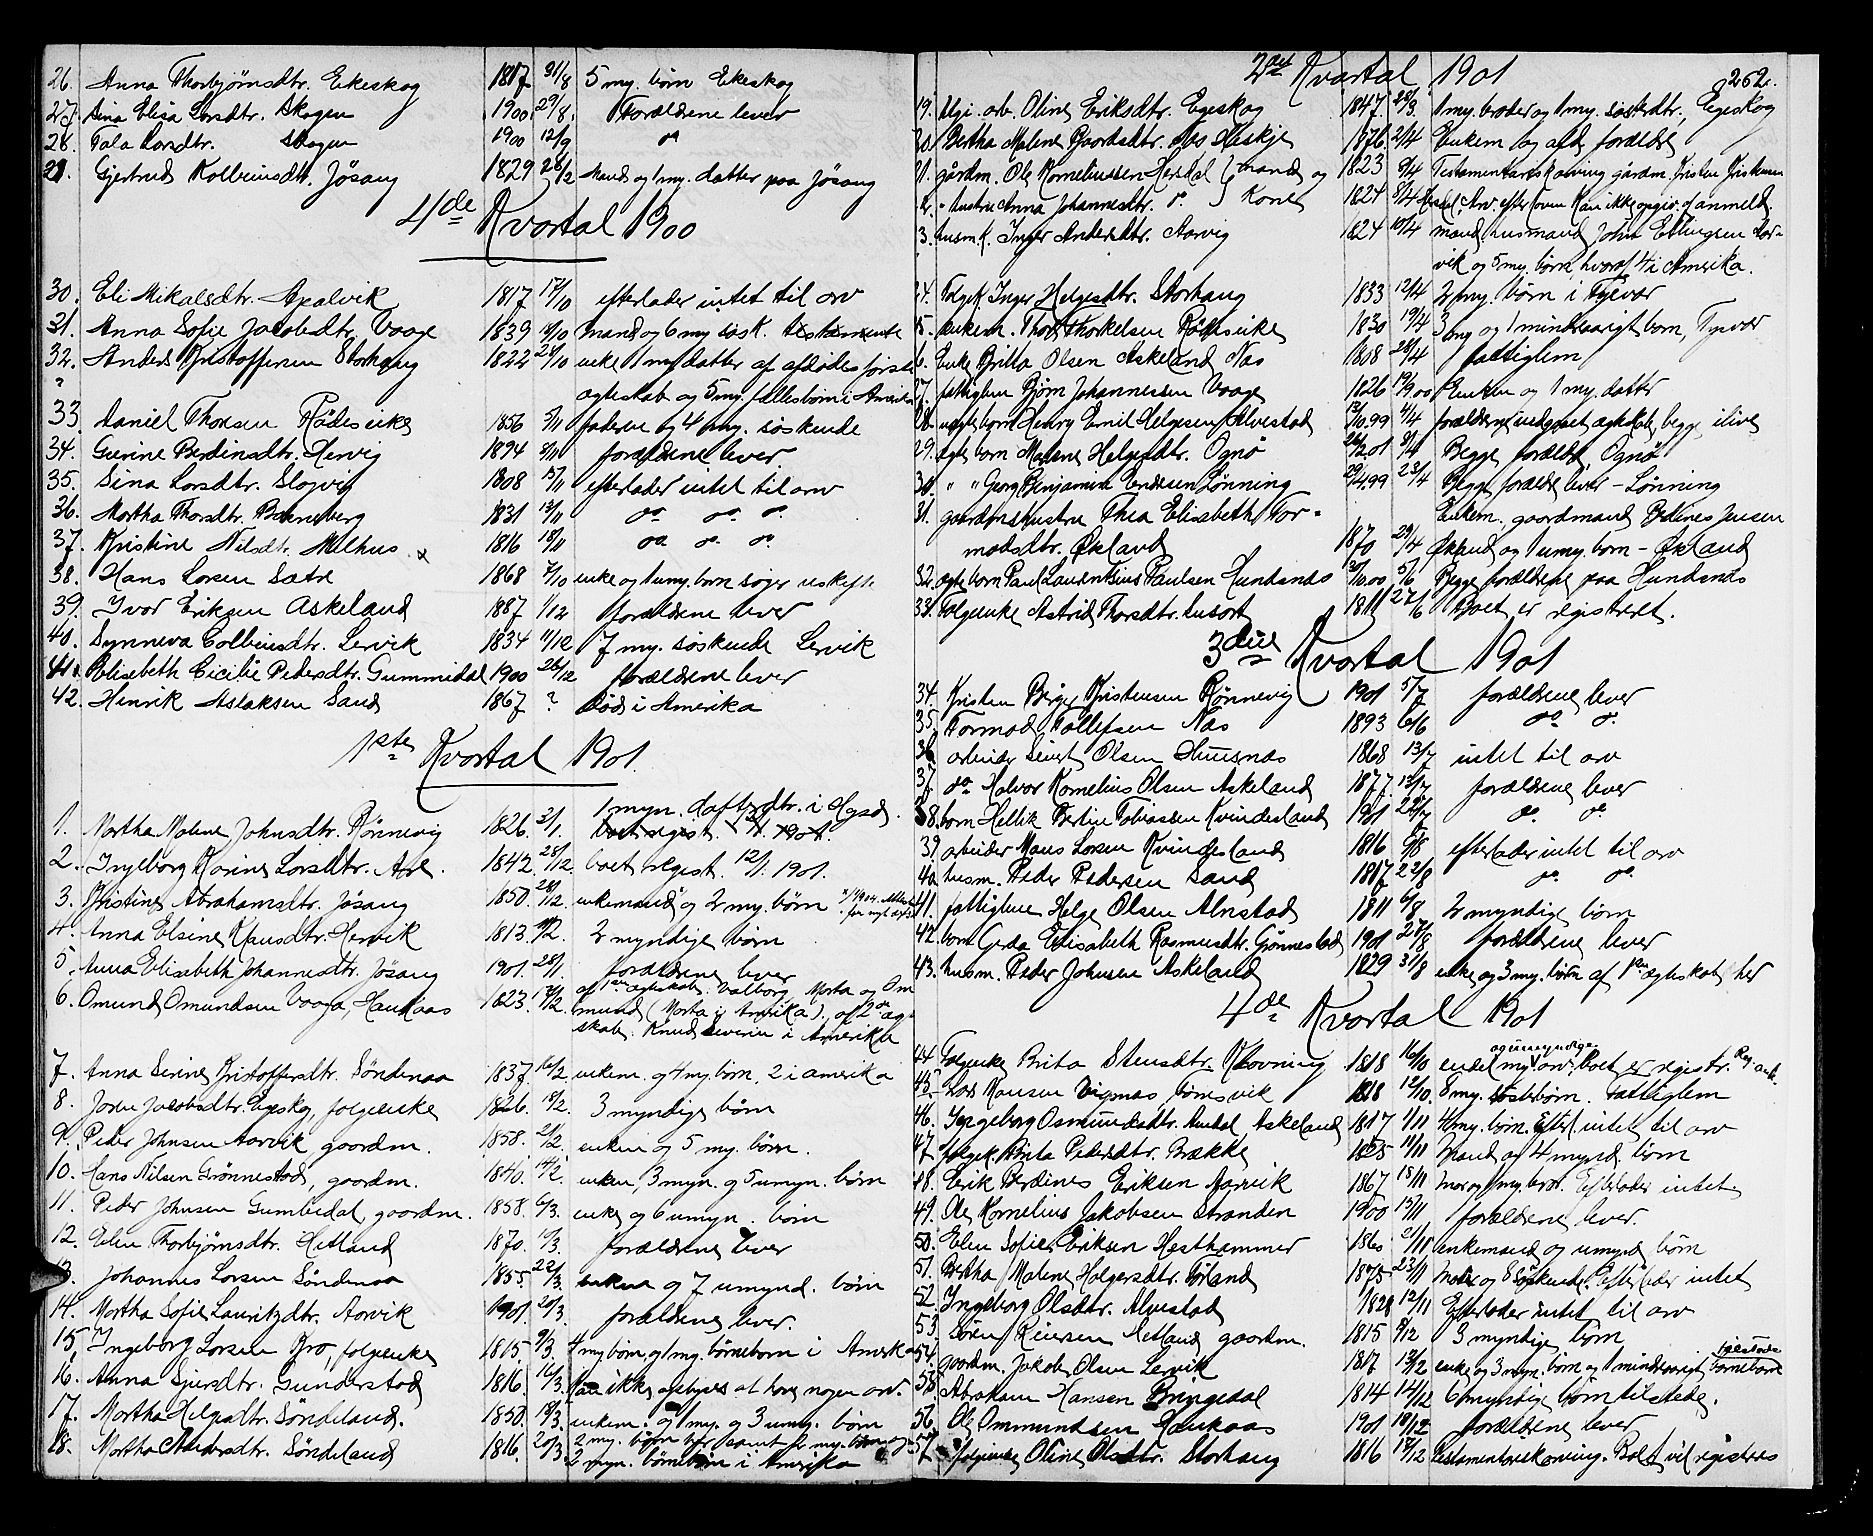 26. Anna Thorbjörnsdtr. Eikeskog 1817 31/8 5 my. børn Ekeskog
27. Sina Elisa Larsdtr. Skogen 1900 29/8 Forældrene lever
28. Tala Larsdtr. Skogen 1900 12/9 do
29. Gjertrud Kolbeinsdt. Jösang 1829 28/2 mand og 1 my. datter paa Jösang
4de Kvartal 1900
30. Eli Mikalsdtr. Apalvik 1817 17/10 efterlader intet til arv
31. Anna Sofie Jacobsdtr. Vaage 1839 11/10 mand og 6 my søsk. testamente
32. Anders Kristoffersen Storhaug 1822 24/10 enke 1 my datter af afdødes første
ægteskab og 5 my. fællesbörn i Amerika
33. Daniel Thorsen Rødesvike 1856 5/11 faderen og 4 my. søskende
34. Gurine Berdinsdtr. Hervig 1894 8/11 forældrene lever
35. Sina Larsdtr. Slogvig 1808 15/11 efterlader intet til arv
36. Martha Thorsdtr. Bønneberg 1831 13/11 do do do
37. Kristine Nilsdtr. Melhus 1816 18/11 do do do
38. Hans Larsen Sætre 1868 7/10 enke og 1 umy. barn søger uskifte
39. Ivar Eriksen Askeland 1887 1/12 forældrene lever
40. Synneva Colbeinsdtr. Lervik 1834 11/12 7 my. søskende Lervik
41. Elisabeth Cicilie Pedersdtr. Gummedal 1900 26/12 forældrene lever
42. Henrik Aslaksen Sand 1867 ? død i Amerika
1ste Kvartal 1901.
1 myn. datterdtr. i Høgsd.
1. Martha Malene Johnsdtr. Rönnevig 1826. 3/1. boet regist. 1901.
2. Ingeborg Karine Larsdtr. Are. 1842. 28/12 boet regist. 12/1. 1901.
3. Kristine Abrahamsdtr. Jösang 1850. 28/12. enkemand og 2 my. børn
4. Anna Elsine Klausdtr. Hervik 1813. /2. 2 myndige børn
5. Anna Elisabeth Johannesdtr. Jösang 1901. 28/1. forældrene lever
6. Omund Omundsen Vaaga, Haukaas 1823. /2. af 1ste ægteskab: Valborg, Marta og Om
mund (Marta i Amerika), af 2de æg
skab: Knud Severin i Amerika
7. Anna Serine Kristoffersdtr. Söndenaa 1837. 10/2. enkem. og 4 my. børn, 2 i amerika
8. Joren Jacobsdtr. Egeskog, folgeenke 1826. 18/2. 3 myndige børn
9. Peder Johnsen Aarvik, gaardm. 1858. 2/2. enken og 5 my. børn.
10. Hans Nilsen Grønnestad, gaardm. 1840. 14/2. enken, 3 myn. og 5 umyn. børn
11. Peder Johnsen Gumbedal, gaardm. 1858. 6/3. enke og 6 umyn. børn
12. Elen Thorbjörnsdtr. Hetland 1870. /3. forældrene lever
13. Johannes Larsen Söndenaa 1855 22/3. enken og 7 umynd. børn
14. Martha Sofie Lauritzdtr. Aarvik 1901. 20/3. forældrene lever.
15. Ingeborg Larsen Kro, folgeenke 1815. 9/3. 4 my børn, og 1 my. børnebarn i Amerika
16. Anna Sjursdtr. Gunderstad 1816. 16/3. kan ikke oplyses at have nogen arv.
17. Martha Helgesdtr. Söndeland. 1850. 18/3. enkem. og 1 my. og 3 umy. børn
18. Martha Andersdtr. Söndeland 1816. 20/3. 2 my. børn her samt 2 my. børn og
2 myn. børnebørn i Amerika
2det Kvartal 1901 262.
19. Pigi. arb. Oline Eriksdtr. Egeskog 1847. 28/3. 1 my. broder og 1 my. søsterdtr., Egeskog
20. Bertha Malene Baardsdtr. Aas Meskje 1876. 2/4 Enkem. og afd. forældre
21. gårdm. Ole Korneliussen Herskal } mand og 1823 9/4 Testamentariskalving gårdm. Kristen Kristensen
22. " hustru Anna Johannesdtr. do } Kone 1824 8/4 Arv. efter loven kan ikke opgiv. af anmeld.
3. husm.k. Inger Andersdtr. Aarvig 1824 10/4 mand, husmand John Ellingsen Aar-
vik og 5 my. børn, hvoraf 4 i Amerika.
24. Folgek. Inger Helgesdtr. Storhaug 1833 12/4 2 my. børn i Tysvær
25. enkem. Thore Thorkelsen Rødesvike 1830 19/4 3 my og 1 mindreaarigt barn, Tysvær
6. Enke Britta Olsen Askeland Nas 1808 28/4 fattiglem
27. fattiglem Bjørn Johannessen Vaage 1826 19/9.00 Enken og 1 my. datter
28. uægte barn Henry Emil Helgesen Alvestad 13/10.99 4/4 forældrene indgaaet ægteskab, begge ilive
29. Ægte barn Malene Helgesdtr. Ognø 26/2.01 8/4 Begge forældre, Ognø
30. " " Georg Benjamin Endresen Lönning 29/4.99 23/4 Begge forældre lever - Lönning
31. gaardmshustru Thea Elisabeth Tor- Enkem. gaardmand Edines Jensen
modsdtr. Økland 1870 29/4 Økland og 1 umy. barn - Økland
32. ægte barn Paul Laurentsius Paulsen Hundsnes 30/10.00 5/6 Begge forældrene paa Hundsnes
33. Folgeenke Astrid Thorsdtr. Lusort 1811 27/6 Boet er registreret.
3die Kvartal 1901
34. Kristen Berge Kristensen Rönnevig 1901 5/7 forældrene lever
35. Tormod Tollefsen Nas 1893 6/6 do do
36. arbeider Sivert Olsen Stuusnas 1868 13/7 intet til arv
37. do Halvor Kornelius Olsen Askeland 1877. 12/7 forældrene lever
38. barn Hellik Bertin Tobiassen Kvindesland 1901 22/7 do do
39. arbeider Mans Larsen Kvindesland 1816 5/8 efterlader intet til arv
40. husm. Peder Pedersen Sand 1817 22/8 do do
41. fattiglem Helge Olsen Alnstad 1811 6/8 2 myndige børn
42. barn Gerda Elisabeth Rasmusdtr. Gjönnestad 1901 27/8 forældrene lever
43. husm. Peder Johnsen Askeland 1829 31/8 enke og 3 my. børn af 1ste ægteskab, her
4de Kvartal 1901
44. Folgeenke Brita Stensdtr. Klovning 1818 16/10 endel my og umyndige arv. boet er registr.
45. Lars Hansen Vigmas Børnsvik 1828 12/10. 8 my. søsterbørn. Fattiglem
46. Ingeborg Osmundsdtr. Askeland 1817 1/11 4 my. børn. Efterl. intet til arv
47. folgek. Brita Pedersdtr. Brække 1825 11/11 Mand og 4 mynd. børn
48. Erik Berdines Eriksen Aarvik 1867 15/11 mor og 1 my. bror. Efterlader intet
49. Ole Kornelius Jakobsen Stranden 1900 15/11 forældrene lever.
50. Elen Sofie Eriksen Hesthammer 1860 21/11 enkemand og umynd. børn
51. Bertha Malene Holgersdtr. Eiland 1875 23/11 Moder og 8 søskende. Efterlader intet
52. Ingeborg Olsdtr. Alvestad 1828 12/11 Efterlader intet til arv
53. Søren Reiersen Hetland gaardm. 1815 8/12 3 myndige børn
54. gaardm. Jakob Olsen Lervik 1817 13/2 enke og 3 myn. børn og 1 mindreaarigt børnebarn
55. Abraham Hansen Bringedal 1814 14/12 6 myndige børn tilstede.
56. Ole Ommundsen Haukaas 1901 18/12 forældrene lever
57. Folgeenke Oline Olsdtr. Storhaug 1816 17/12 Testamentariskening. Boet vil registreres